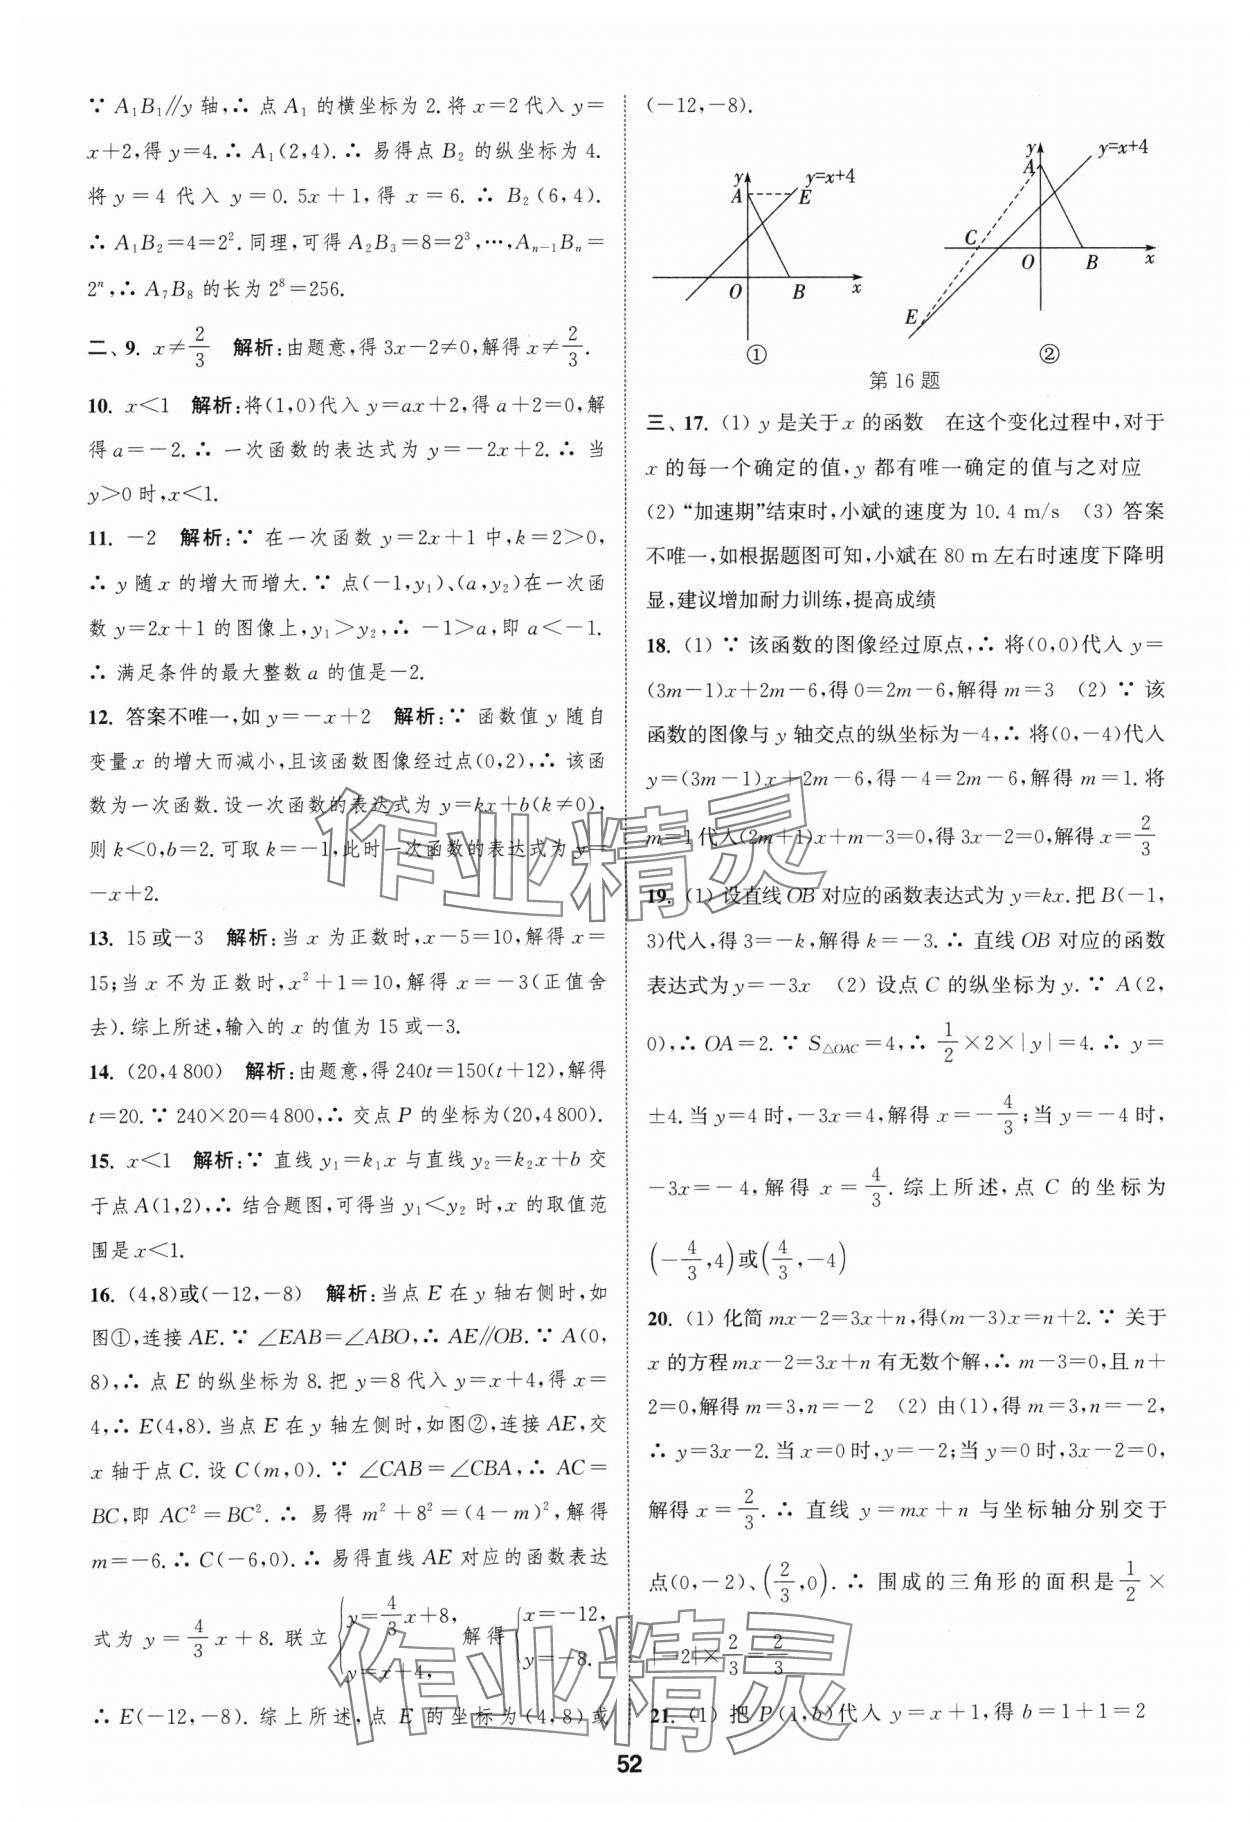 ∵ A₁B₁∥y 轴,∴ 点 A₁ 的横坐标为 2. 将 x=2 代入 y=
x+2,得 y=4. ∴ A₁(2,4). ∴ 易得点 B₂ 的纵坐标为 4.
将 y=4 代入 y=0.5x+1,得 x=6. ∴ B₂(6,4).
∴ A₁B₂=4=2². 同理,可得 A₂B₃=8=2³,…,Aₙ₋₁Bₙ=
2ⁿ,∴ A₇B₈ 的长为 2⁸=256.
二、9. x≠2/3 解析:由题意,得 3x-2≠0,解得 x≠2/3.
10. x<1 解析:将(1,0)代入 y=ax+2,得 a+2=0,解
得 a=-2. ∴ 一次函数的表达式为 y=-2x+2. ∴ 当
y>0 时,x<1.
11. -2 解析:∵ 在一次函数 y=2x+1 中,k=2>0,
∴ y 随 x 的增大而增大. ∵ 点(-1,y₁)、(a,y₂)在一次函
数 y=2x+1 的图像上,y₁>y₂,∴ -1>a,即 a<-1.
∴ 满足条件的最大整数 a 的值是-2.
12. 答案不唯一,如 y=-x+2 解析:∵ 函数值 y 随自
变量 x 的增大而减小,且该函数图像经过点(0,2),∴ 该函
数为一次函数. 设一次函数的表达式为 y=kx+b(k≠0),
则 k<0,b=2. 可取 k=-1,此时一次函数的表达式为 y=
-x+2.
13. 15 或-3 解析:当 x 为正数时,x-5=10,解得 x=
15;当 x 不为正数时,x²+1=10,解得 x=-3(正值舍
去). 综上所述,输入的 x 的值为 15 或-3.
14. (20,4 800) 解析:由题意,得 240t=150(t+12),解得
t=20. ∵ 240×20=4 800,∴ 交点 P 的坐标为(20,4 800).
15. x<1 解析:∵ 直线 y₁=k₁x 与直线 y₂=k₂x+b 交
于点 A(1,2),∴ 结合题图,可得当 y₁<y₂ 时,x 的取值范
围是 x<1.
16. (4,8)或(-12,-8) 解析:当点 E 在 y 轴右侧时,如
图①,连接 AE. ∵ ∠EAB=∠ABO,∴ AE∥OB. ∵ A(0,
8),∴ 点 E 的纵坐标为 8. 把 y=8 代入 y=x+4,得 x=
4,∴ E(4,8). 当点 E 在 y 轴左侧时,如图②,连接 AE,交
x 轴于点 C. 设 C(m,0). ∵ ∠CAB=∠CBA,∴ AC=
BC,即 AC²=BC². ∴ 易得 m²+8²=(4-m)²,解得
m=-6. ∴ C(-6,0). ∴ 易得直线 AE 对应的函数表达
式为 y=4/3x+8. 联立{y=4/3x+8, y=x+4, 解得{x=-12, y=-8.
∴ E(-12,-8). 综上所述,点 E 的坐标为(4,8)或
(-12,-8).
y A y=x+4 E O B x ①
y A y=x+4 C O B x E ②
第 16 题
三、17. (1) y 是关于 x 的函数 在这个变化过程中,对于
x 的每一个确定的值,y 都有唯一确定的值与之对应
(2) “加速期”结束时,小斌的速度为 10.4 m/s (3) 答案
不唯一,如根据题图可知,小斌在 80 m 左右时速度下降明
显,建议增加耐力训练,提高成绩
18. (1) ∵ 该函数的图像经过原点,∴ 将(0,0)代入 y=
(3m-1)x+2m-6,得 0=2m-6,解得 m=3 (2) ∵ 该
函数的图像与 y 轴交点的纵坐标为-4,∴ 将(0,-4)代入
y=(3m-1)x+2m-6,得-4=2m-6,解得 m=1. 将
m=1 代入(2m+1)x+m-3=0,得 3x-2=0,解得 x=2/3
19. (1) 设直线 OB 对应的函数表达式为 y=kx. 把 B(-1,
3)代入,得 3=-k,解得 k=-3. ∴ 直线 OB 对应的函数
表达式为 y=-3x (2) 设点 C 的纵坐标为 y. ∵ A(2,
0),∴ OA=2. ∵ S△OAC=4,∴ 1/2×2×|y|=4. ∴ y=
±4. 当 y=4 时,-3x=4,解得 x=-4/3;当 y=-4 时,
-3x=-4,解得 x=4/3. 综上所述,点 C 的坐标为
(-4/3,4)或(4/3,-4)
20. (1) 化简 mx-2=3x+n,得(m-3)x=n+2. ∵ 关于
x 的方程 mx-2=3x+n 有无数个解,∴ m-3=0,且 n+
2=0,解得 m=3,n=-2 (2) 由(1),得 m=3,n=-2,
∴ y=3x-2. 当 x=0 时,y=-2;当 y=0 时,3x-2=0,
解得 x=2/3. ∴ 直线 y=mx+n 与坐标轴分别交于
点(0,-2)、(2/3,0). ∴ 围成的三角形的面积是 1/2×
|-2|×2/3=2/3
21. (1) 把 P(1,b)代入 y=x+1,得 b=1+1=2
作业精灵
作业精灵
52